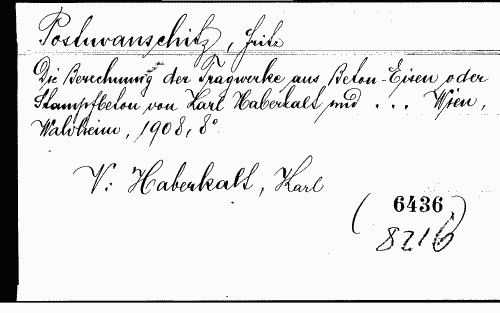 Postuvanschitz, Fritz
Die Berechnung der Tragwerke aus Beton-Eisen oder
Stampfbeton von Karl Haberkalt und ... Wien,
Waldheim, 1908, 8°.
V: Haberkalt, Karl
(6436)
8216